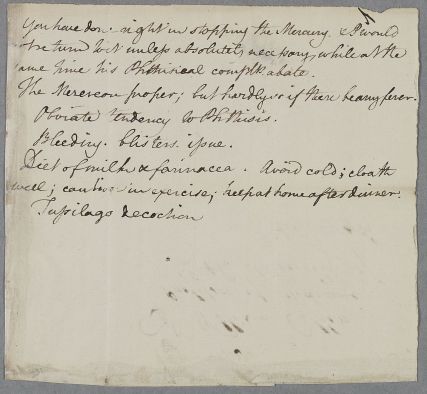 You have done right in stopping the Mercury. & I would
not return to it unless absolutely necessary, while at the
same time his Phthisical complts abate.
The Mezereon proper; but hardly so if there be any fever.
Obviate tendency to Phthisis.
Bleeding. blisters. issue.
Diet of milk & farinacea. Avoid cold; cloath
well; cautious in exercise; keep at home after dinner.
Tussilago decoction